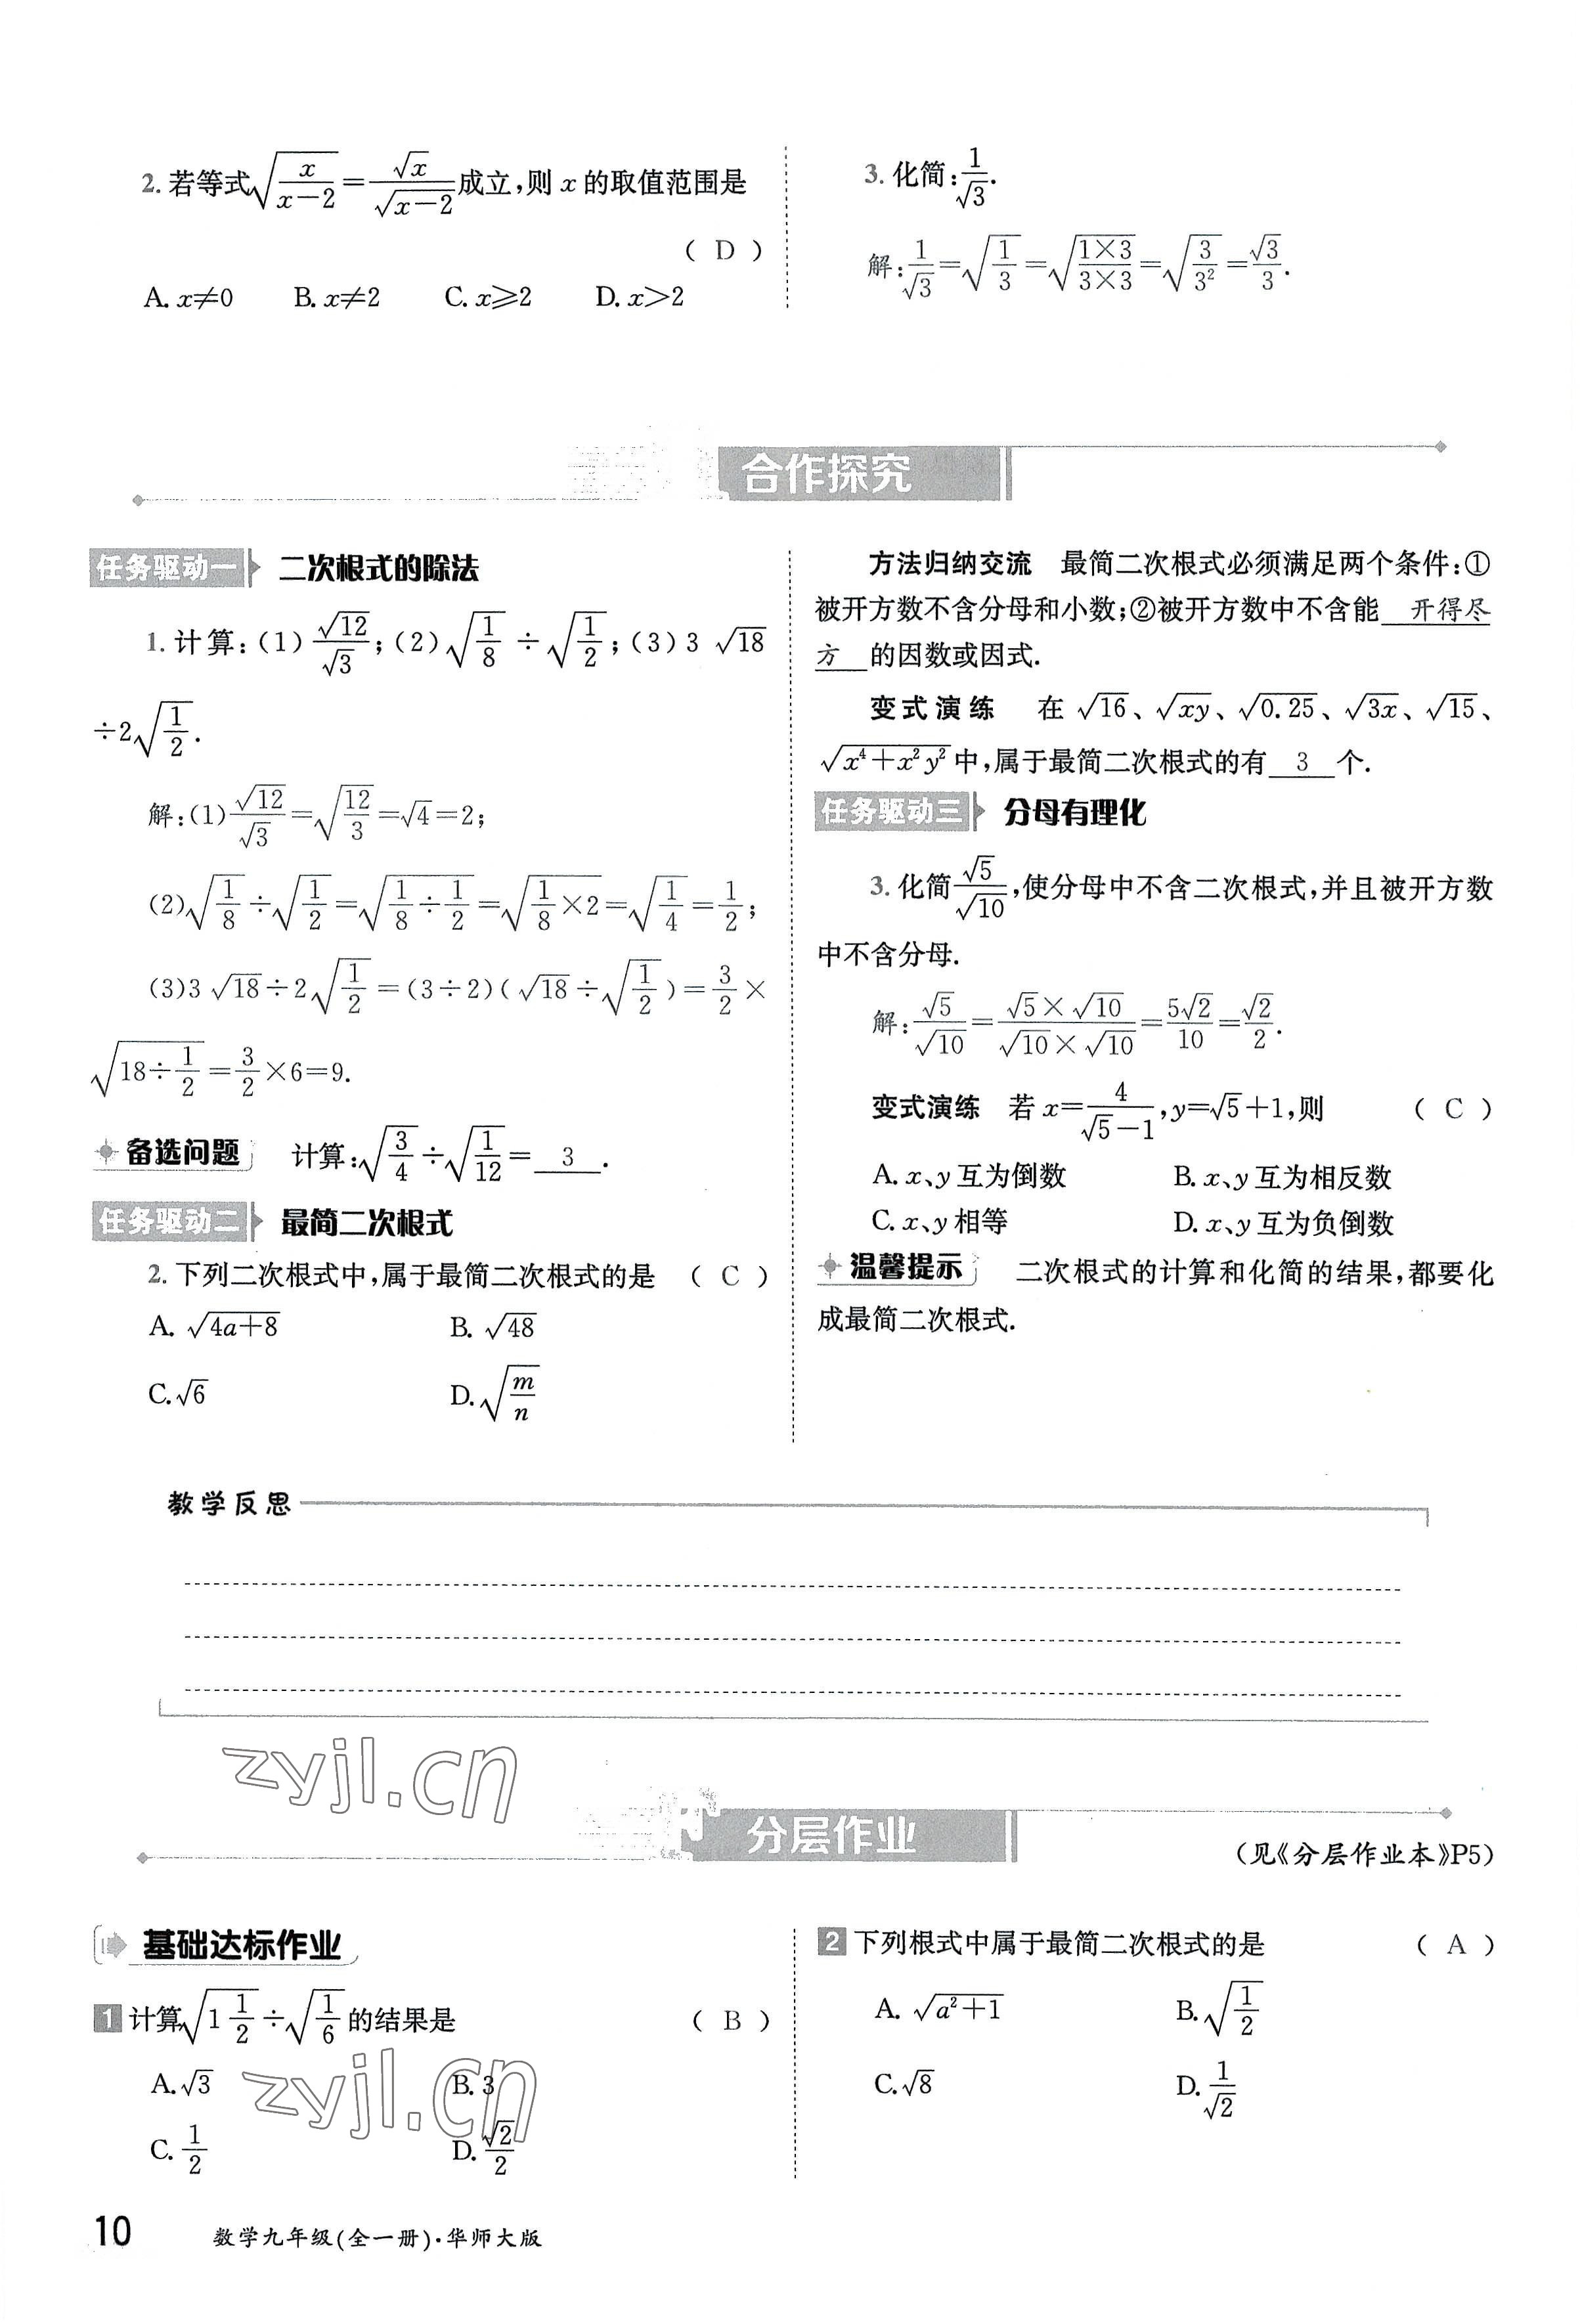 2. 若等式√(x/(x-2))=√x/√(x-2)成立,则 x 的取值范围是
( D )
A. x≠0 B. x≠2 C. x⩾2 D. x>2
3. 化简:1/√3.
解:1/√3=√(1/3)=√((1×3)/(3×3))=√(3/3²)=√3/3.
合作探究
任务驱动一 二次根式的除法
1. 计算:(1)√12/√3;(2)√(1/8)÷√(1/2);(3)3√18
÷2√(1/2).
解:(1)√12/√3=√(12/3)=√4=2;
(2)√(1/8)÷√(1/2)=√(1/8÷1/2)=√(1/8×2)=√(1/4)=1/2;
(3)3√18÷2√(1/2)=(3÷2)(√18÷√(1/2))=3/2×
√(18÷1/2)=3/2×6=9.
备选问题 计算:√(3/4)÷√(1/12)=3.
任务驱动二 最简二次根式
2. 下列二次根式中,属于最简二次根式的是 ( C )
A. √(4a+8) B. √48
C. √6 D. √(m/n)
方法归纳交流 最简二次根式必须满足两个条件:①
被开方数不含分母和小数;②被开方数中不含能 开得尽
方 的因数或因式.
变式演练 在√16、√(xy)、√0.25、√(3x)、√15、
√(x⁴+x²y²)中,属于最简二次根式的有 3 个.
任务驱动三 分母有理化
3. 化简√5/√10,使分母中不含二次根式,并且被开方数
中不含分母.
解:√5/√10=(√5×√10)/(√10×√10)=5√2/10=√2/2.
变式演练 若 x=4/(√5-1),y=√5+1,则 ( C )
A. x、y 互为倒数 B. x、y 互为相反数
C. x、y 相等 D. x、y 互为负倒数
温馨提示 二次根式的计算和化简的结果,都要化
成最简二次根式.
教学反思
zyjl.cn
分层作业
(见《分层作业本》P5)
基础达标作业
1 计算√(1 1/2)÷√(1/6)的结果是 ( B )
A. √3 B. 3
C. 1/2 D. √2/2
zyjl.cn
2 下列根式中属于最简二次根式的是 ( A )
A. √(a²+1) B. √(1/2)
C. √8 D. 1/√2
10 数学九年级(全一册)·华师大版